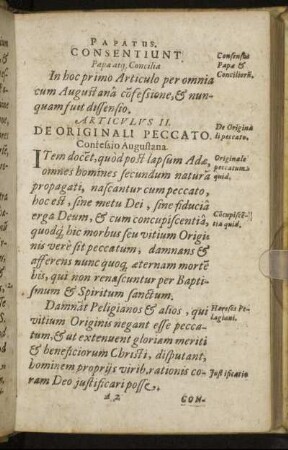 PAPATUS.
CONSENTIUNT
Papa atq; Concilia
In hoc primo Articulo per omnia
cum Augustanâ cõfessione, & nun-
quam fuit dissensio.
Consensus
Papæ &
Conciliorũ.
ARTICULUS II.
DE ORIGINALI PECCATO.
Confessio Augustana.
De Origina
li peccato.
ITem docẽt, quòd post lapsum Adæ,
omnes homines secundum naturã
propagati, nascantur cum peccato,
hoc est, sine metu Dei, sine fiduciâ
erga Deum, & cum concupiscentiâ,
quodq; hic morbus seu vitium Origi
nis verè sit peccatum, damnans &
afferens nunc quoq; æternam mortẽ
his, qui non renascuntur per Bapti-
smum & Spiritum sanctum.
Originale
peccatum
quid.
Cõcupiscẽ-
tia quid.
Damnãt Peligianos & alios, qui
vitium Originis negant esse pecca-
tum, & ut extenuent gloriam meriti
& beneficiorum Christi, disputant,
hominem proprijs virib. rationis co-
ram Deo justificari posse.
Hæresis Pe-
lagiani.
Justificatio
A 2
CON-